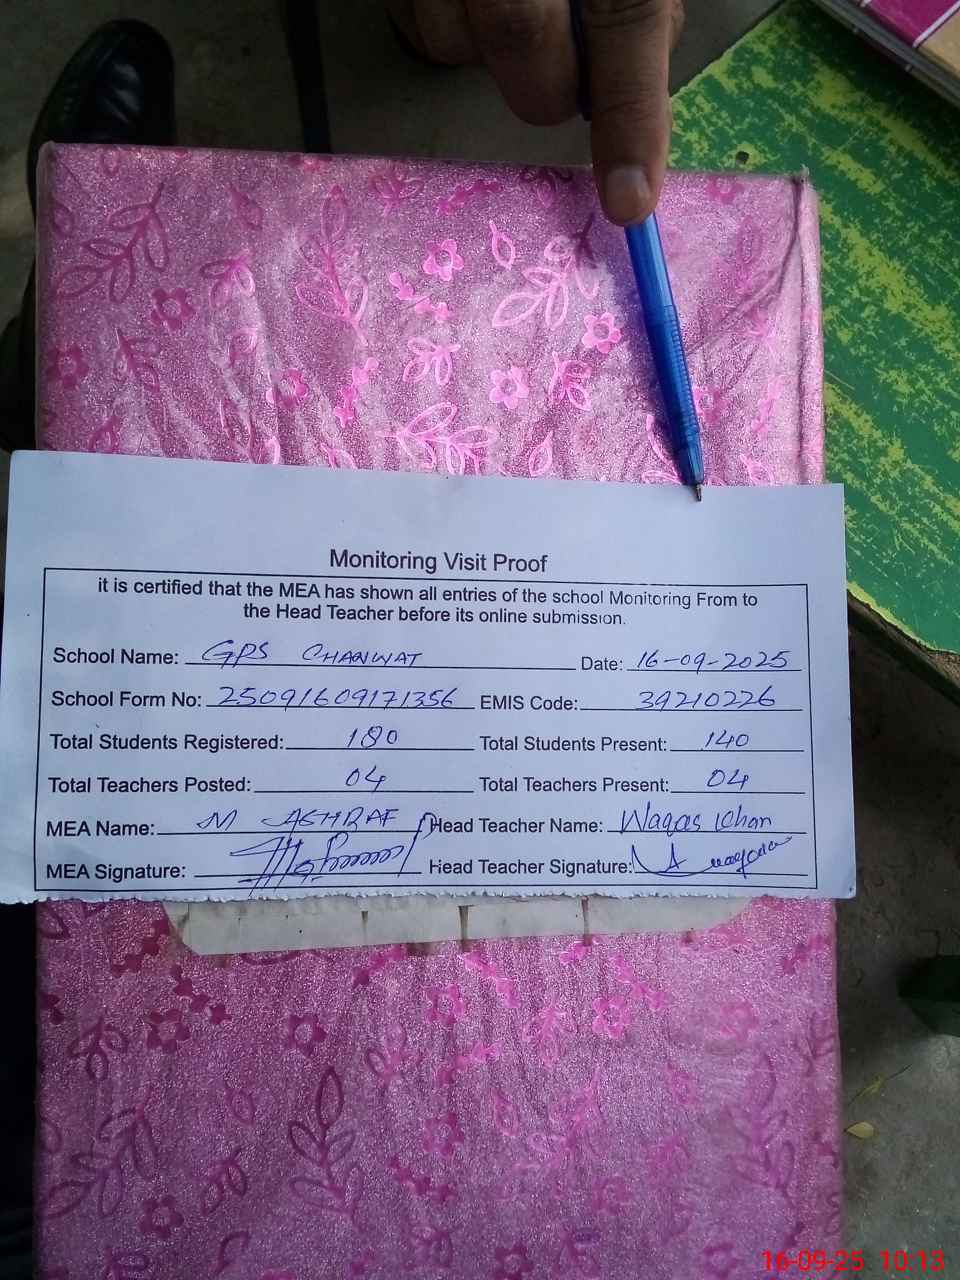 Monitoring Visit Proof
it is certified that the MEA has shown all entries of the school Monitoring From to
the Head Teacher before its online submission.
School Name: GPS CHANWAT Date: 16-09-2025
School Form No: 25091609171356 EMIS Code: 39210226
Total Students Registered: 180 Total Students Present: 140
Total Teachers Posted: 04 Total Teachers Present: 04
MEA Name: M ASHRAF Head Teacher Name: Waqas Khan
MEA Signature: Head Teacher Signature:
16-09-25 10:13